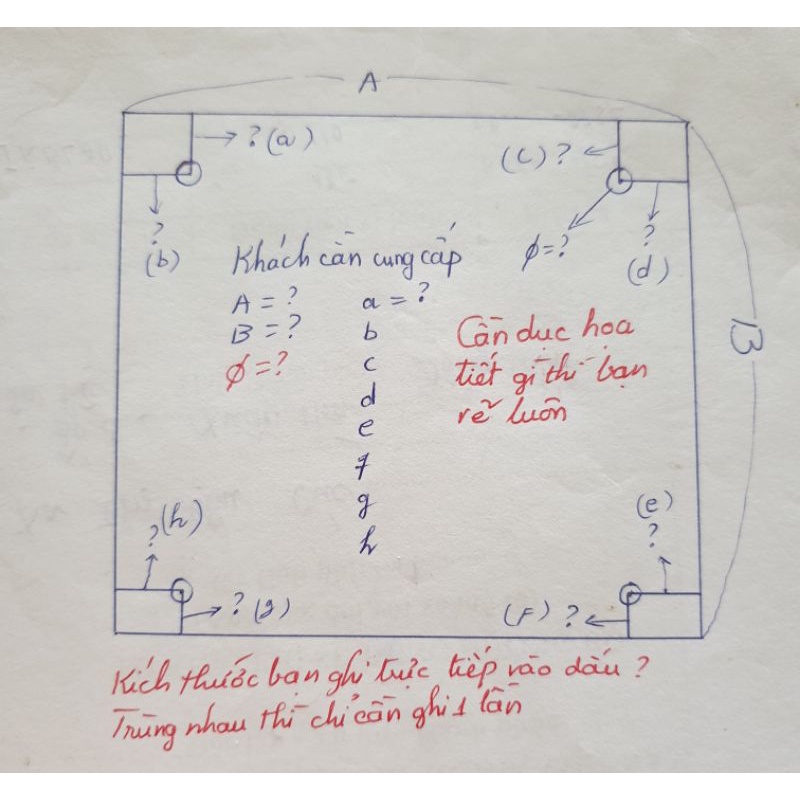 A
? (a)
(C) ?
?
(b)
φ=?
?
(d)
Khách cần cung cấp
A = ?
B = ?
φ = ?
a = ?
b
c
d
e
f
g
h
Cần dục họa
tiết gì thì bạn
vẽ luôn
B
(h)
?
(e)
?
? (g)
(F) ?
Kích thước bạn ghi trực tiếp vào dấu ?
Trùng nhau thì chỉ cần ghi 1 lần